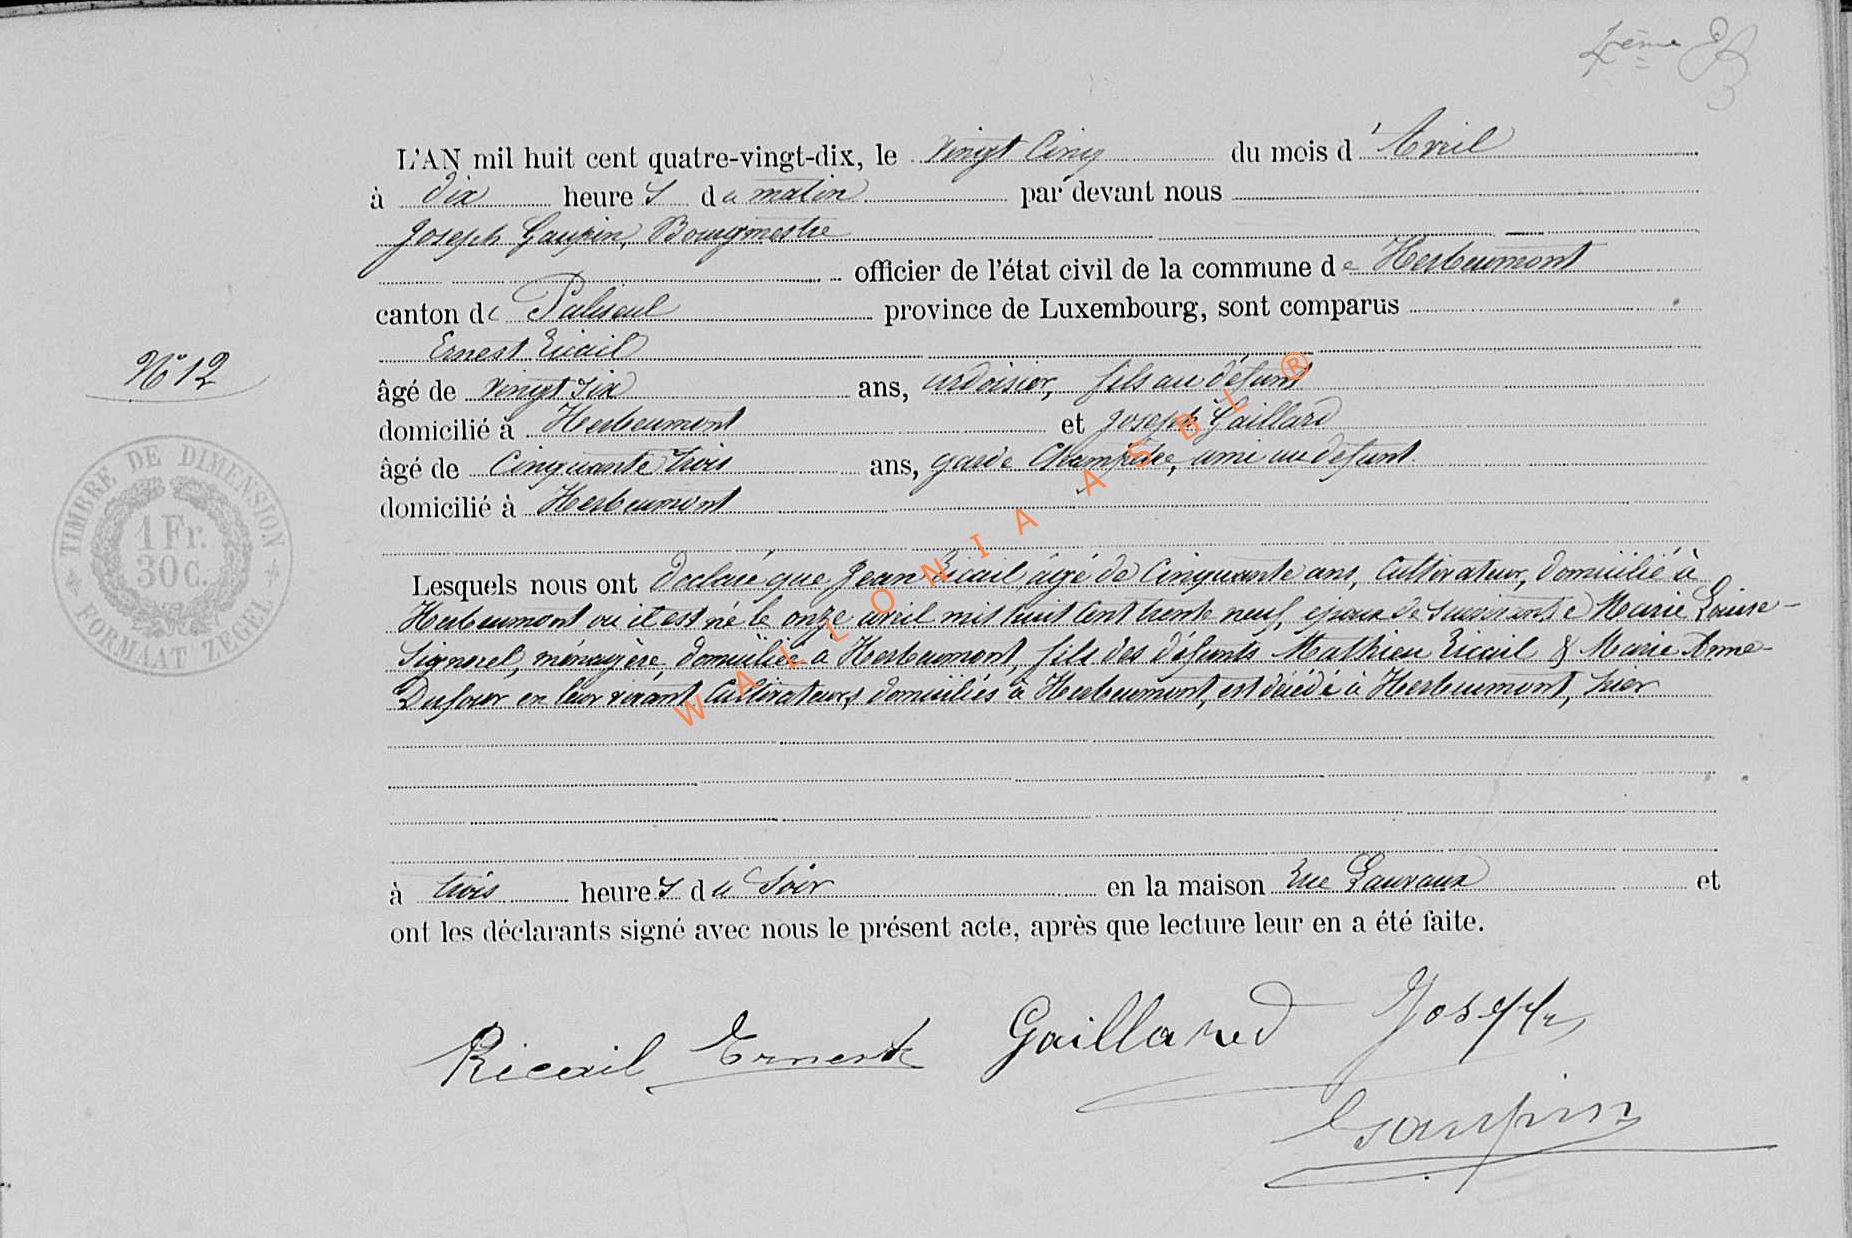 4ème
L'AN mil huit cent quatre-vingt-dix, le vingt Cinq du mois d'Avril
à dix heures du matin par devant nous
Joseph Gaupin, Bourgmestre
officier de l'état civil de la commune de Herbeumont
canton de Paliseul province de Luxembourg, sont comparus
Ernest Ricail
N° 12
âgé de vingt six ans, ardoisier, fils au défunt
domicilié à Herbeumont et Joseph Gaillard
âgé de Cinquante trois ans, garde Champêtre, ami au défunt
domicilié à Herbeumont
TIMBRE DE DIMENSION
1 Fr.
30 C.
FORMAAT ZEGEL
Lesquels nous ont déclaré que Jean Ricail, âgé de Cinquante ans, Cultivateur, domicilié à
Herbeumont où il est né le onze avril mil huit Cent trente neuf, époux de survivante Marie Louise
Signorel, ménagère, domiciliée à Herbeumont, fils des défunts Mathieu Ricail & Marie Anne
Dufour en leur vivant Cultivateurs, domiciliés à Herbeumont, est décédé à Herbeumont, hier
à trois heures du Soir en la maison Rue Lauvaux et
ont les déclarants signé avec nous le présent acte, après que lecture leur en a été faite.
Ricail Ernest Gaillard Joseph
Gaupin
WALLONIA ASBL ®